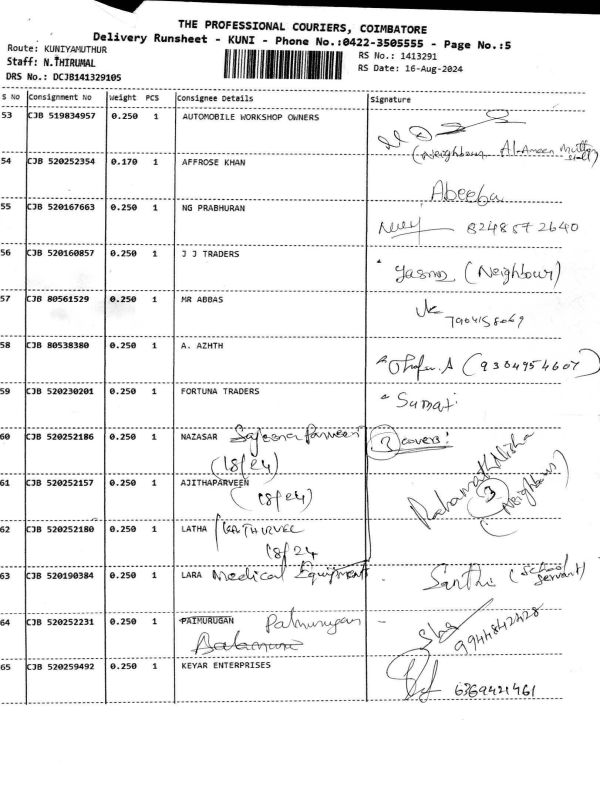 THE PROFESSIONAL COURIERS, COIMBATORE
Delivery Runsheet - KUNI - Phone No.:0422-3505555 - Page No.:5
Route: KUNIYAMUTHUR
RS No.: 1413291
Staff: N.THIRUMAL
RS Date: 16-Aug-2024
DRS No.: DCJB141329105
S No Consignment No Weight PCS Consignee Details Signature
53 CJB 519834957 0.250 1 AUTOMOBILE WORKSHOP OWNERS
(Neighbour Al-Ameen Mutton Stall)
54 CJB 520252354 0.170 1 AFFROSE KHAN Abeeba
55 CJB 520167663 0.250 1 NG PRABHURAN 8248572640
56 CJB 520160857 0.250 1 J J TRADERS (Neighbour)
57 CJB 80561529 0.250 1 MR ABBAS
7904158069
58 CJB 80538380 0.250 1 A. AZHTH (9384954607)
59 CJB 520230201 0.250 1 FORTUNA TRADERS Sumati
60 CJB 520252186 0.250 1 NAZASAR covers!
(18/24)
61 CJB 520252157 0.250 1 AJITHAPARVEEN Rahamath Nisha 3 (Neighbour)
(18/24)
62 CJB 520252180 0.250 1 LATHA KATHIRVEL
18/24
63 CJB 520190384 0.250 1 LARA Medical Equipment Santhi (School servant)
64 CJB 520252231 0.250 1 PAIMURUGAN Palmurugan - 9944842428
65 CJB 520259492 0.250 1 KEYAR ENTERPRISES 6369421461